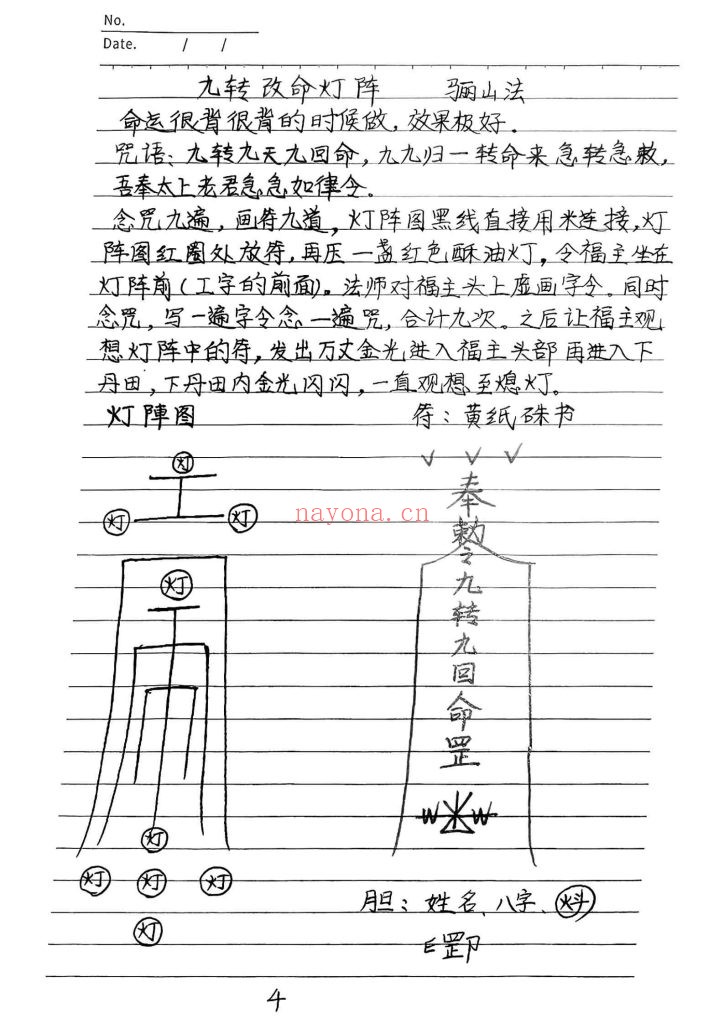 No.
Date. / /
九转改命灯阵 骊山法
命运很背很背的时候做，效果极好。
咒语：九转九天九回命，九九归一转命来急转急敕，
吾奉太上老君急急如律令。
念咒九遍，画符九道，灯阵图黑线直接用米连接，灯
阵图红圈处放符，再压一盏红色酥油灯，令福主坐在
灯阵前（工字的前面）。法师对福主头上虚画字令。同时
念咒，写一遍字令念一遍咒，合计九次。之后让福主观
想灯阵中的符，发出万丈金光进入福主头部再进入下
丹田，下丹田内金光闪闪，一直观想至熄灯。
灯陣图 符：黄纸硃书
灯
灯 灯
nayona.cn
灯
灯
灯 灯 灯
灯
奉
敕
令
九
转
九
回
命
罡
胆：姓名、八字、
4